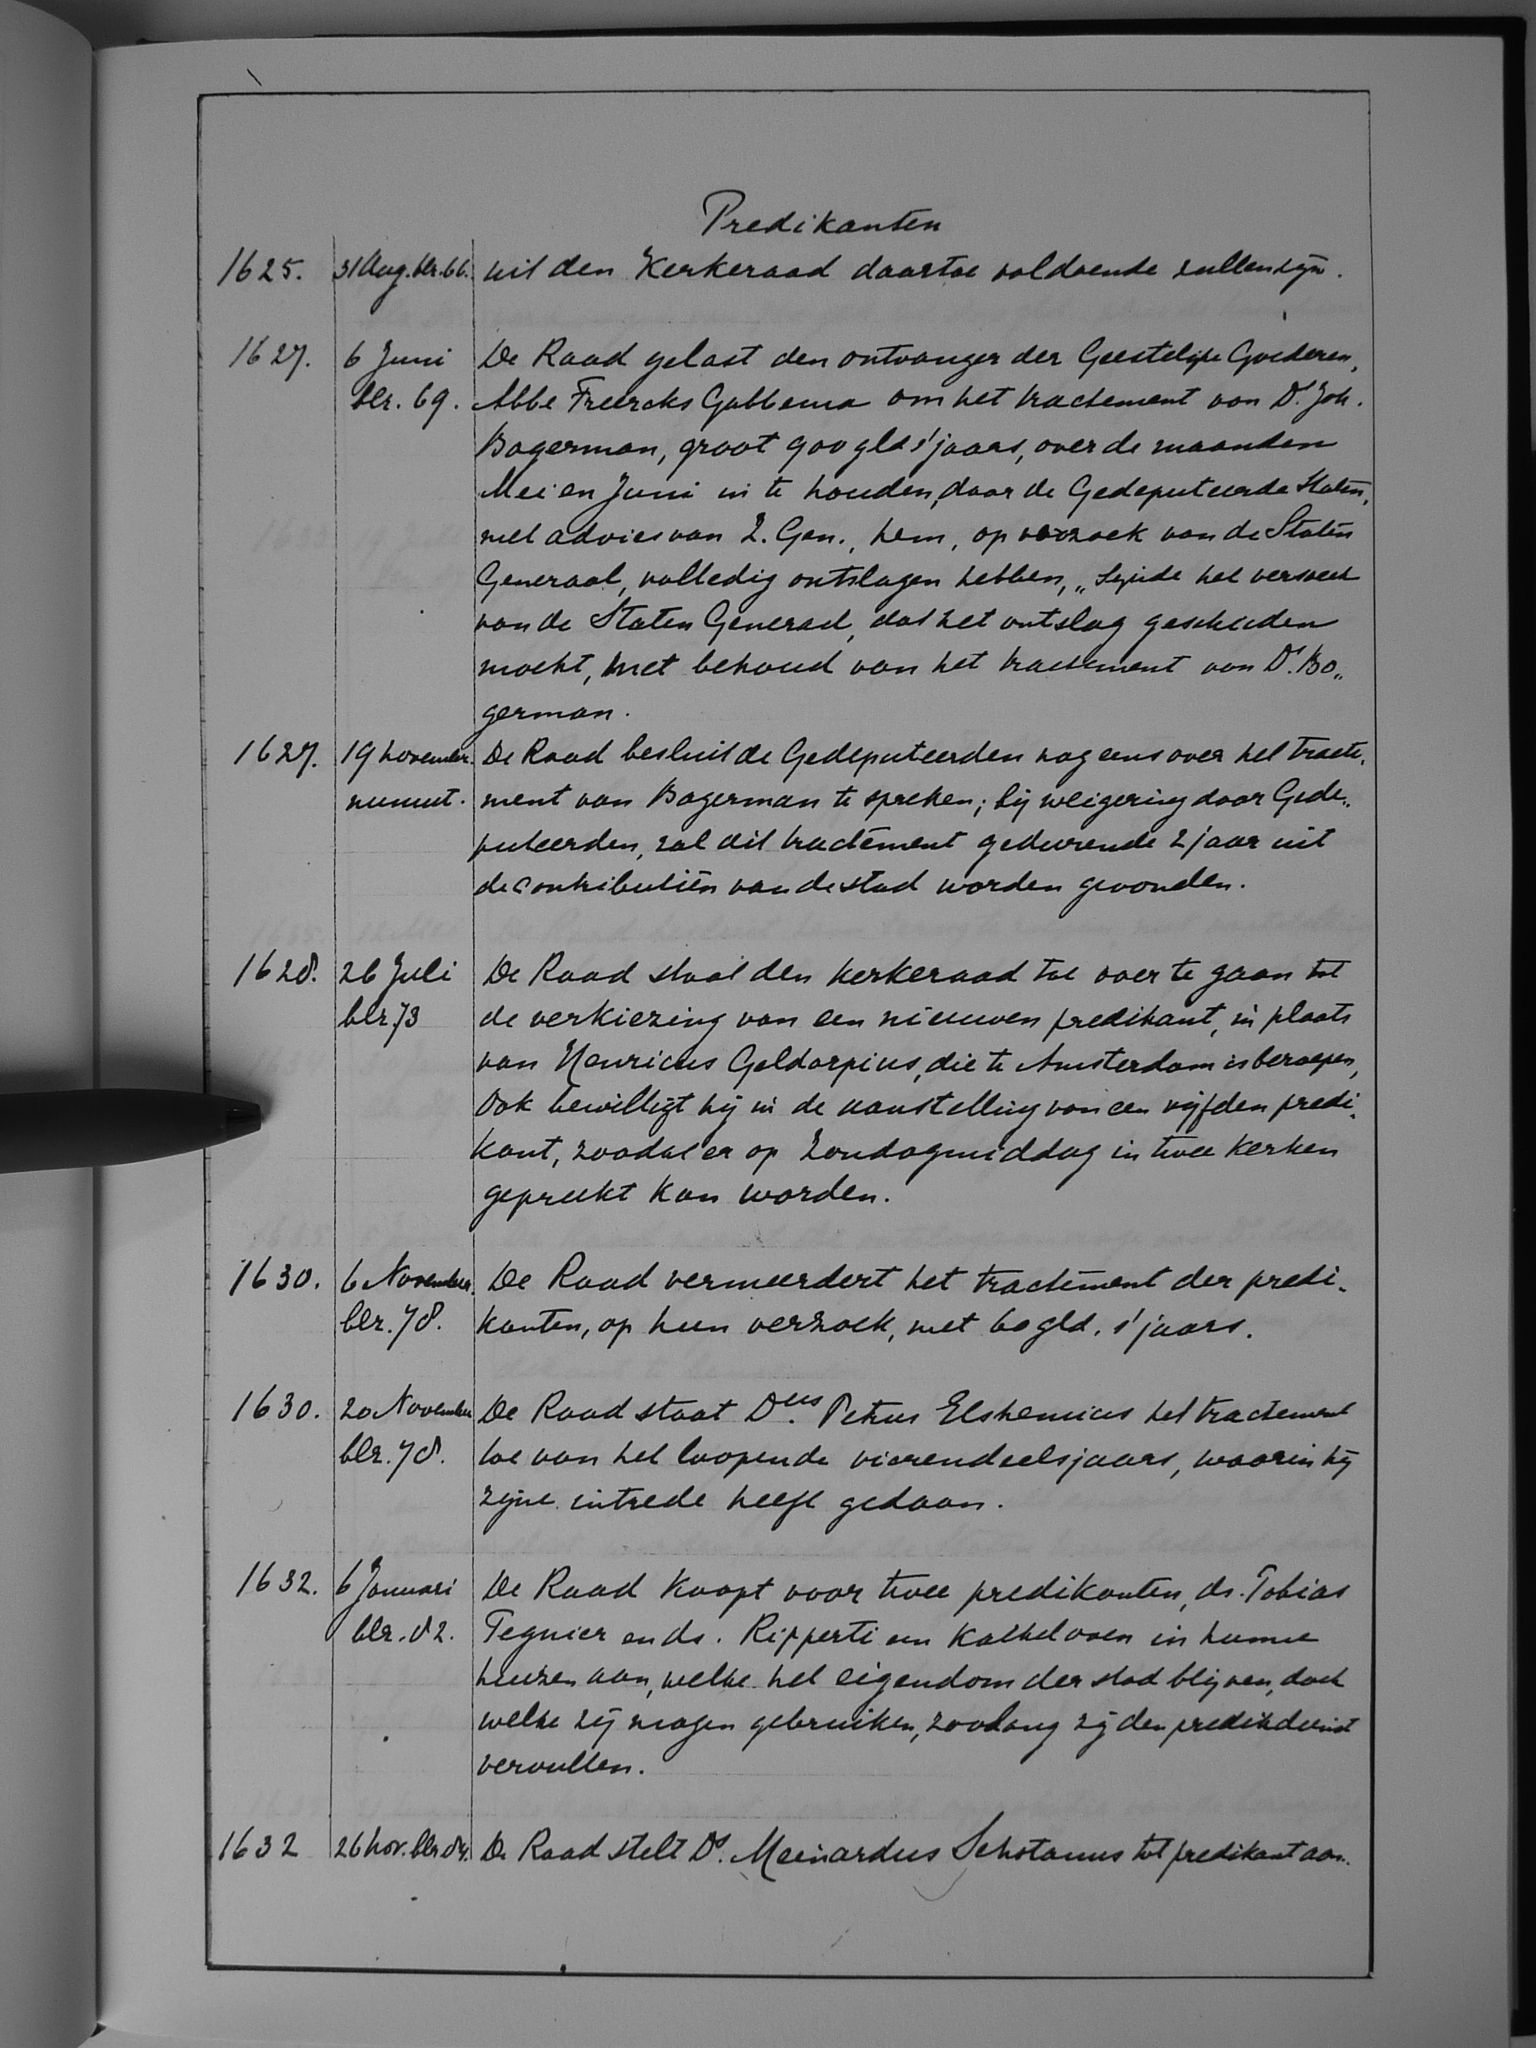 Predikanten
1625. 31 Aug. blz. 66. uit den Kerkeraad daartoe voldoende zullen zijn.
1627. 6 Juni De Raad gelast den ontvanger der Geestelijke Goederen,
blz. 69. Abbe Freercks Gabbema om het tractement van Ds. Joh.
Bogerman, groot 900 gld s'jaars, over de maanden
Mei en Juni in te houden, daar de Gedeputeerde Staten,
met advies van Z. Gen., hem, op verzoek van de Staten
Generaal, volledig ontslagen hebben, „ sijnde het versoek
van de Staten Generael, dat het ontslag geschieden
mocht, met behoud van het tractement van Ds. Bo„
german.
1627. 19 november. De Raad besluit de Gedeputeerden nog eens over het tracte„
ment van Bogerman te spreken; bij weigering door Gede„
puteerden, zal dit tractement gedurende 2 jaar uit
de contributiën van de stad worden gevonden.
1628. 26 Juli De Raad staat den kerkeraad toe over te gaan tot
blz. 73 de verkiezing van een nieuwen predikant, in plaats
van Henricus Geldorpius, die te Amsterdam is beroepen,
Ook bewilligt hij in de aanstelling van een vijfden predi„
kant, zoodat er op Zondagmiddag in twee kerken
gepreekt kan worden.
1630. 6 November. De Raad vermeerdert het tractement der predi„
blz. 78. kanten, op hun verzoek, met 60 gld. s'jaars.
1630. 20 November De Raad staat Dus. Petrus Elshemius het tractement
blz. 78. toe van het loopende vierendeelsjaars, waarin hij
zijne intrede heeft gedaan.
1632. 6 Januari De Raad koopt voor twee predikanten, ds. Tobias
blz. 82. Tegnier en ds. Ripperti een kacheloven in hunne
huizen aan, welke het eigendom der stad blijven, doch
welke zij mogen gebruiken, zoolang zij den predikdienst
vervullen.
1632 26 nov. blz. 84. De Raad stelt Ds. Meinardus Schotanus tot predikant aan.